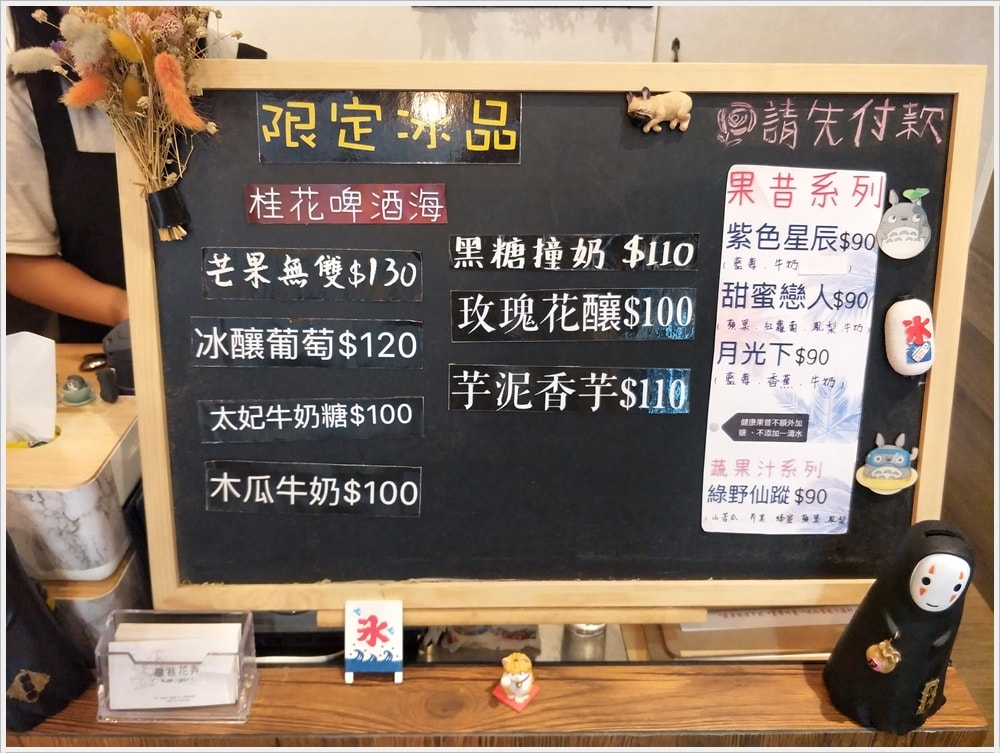 限定冰品
桂花啤酒海
芒果無雙$130
冰釀葡萄$120
太妃牛奶糖$100
木瓜牛奶$100
黑糖撞奶 $110
玫瑰花釀$100
芋泥香芋$110
請先付款
果昔系列
紫色星辰$90
(藍莓.牛奶 )
甜蜜戀人$90
(蘋果.紅蘿蔔.鳳梨.牛奶)
月光下$90
(藍莓.香蕉.牛奶)
健康果昔不額外加
糖、不添加一滴水
蔬果汁系列
綠野仙蹤$90
(山苦瓜.芹菜.蜂蜜.蘋果.鳳梨
氷
氷